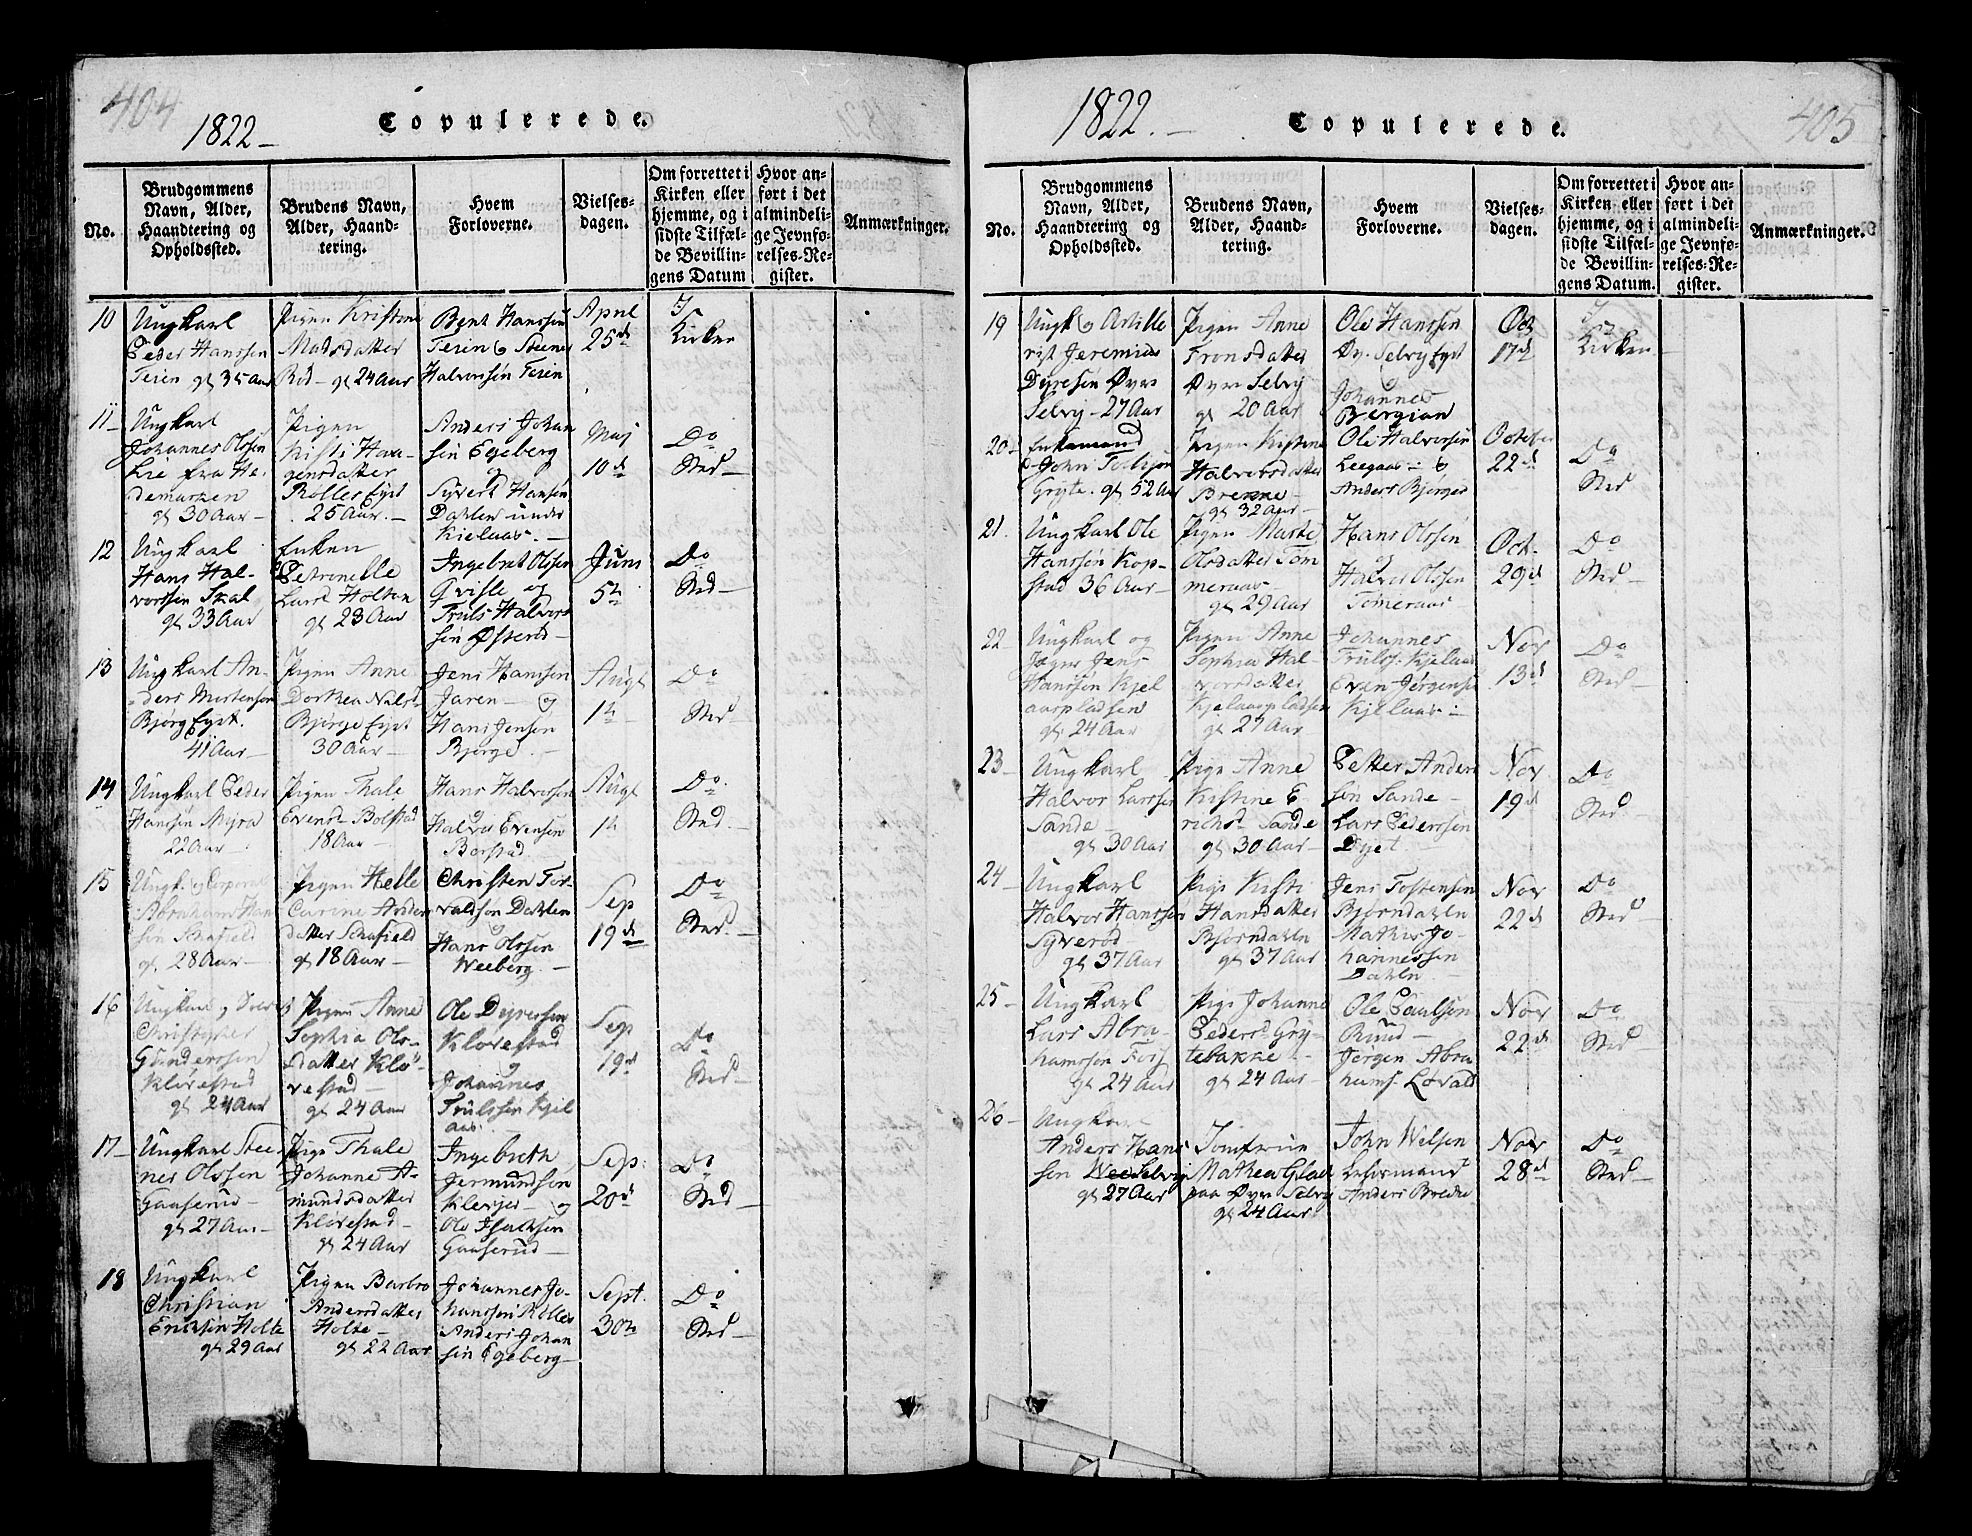 404
1822 –
Copulerede.
No.
Brudgommens Navn, Alder, Haandtering og Opholdssted.
Brudens Navn, Alder, Haandtering.
Hvem Forloverne.
Vielsesdagen.
Om forrettet i Kirken eller hjemme, og i sidste Tilfælde Bevillingens Datum
Hvor anført i det almindelige Jevnførelses-Register.
Anmærkninger.
10
Ungkarl
Peder Hanssen
Teien gl 35 Aar
Pigen Kristine
Madsdatter
Rud – gl 24 Aar
Bent Hanssen
Teien og Steener
Halvorsen Teien
April
25de
I
Kirken
11 –
Ungkarl
Johannes Olssen
Lie fra He-
demarken
gl 30 Aar –
Pigen
Kisti Haa-
gensdatter
Rolles Eyet
25 Aar. –
Anders Johan
sen Egeberg
og
Syvert Hansen
Dahlen under
Kielaas. –
Maj
10d
Do
Sted –
12
Ungkarl
Hans Hal-
vorssen Skal
gl 33 Aar
Enken
Petronelle
Larsd Holten
gl 23 Aar
Ingebret Olssen
Qvisle og
Truls Halvor
sen Østerød –
Juni
5te
Do
Sted –
13
Ungkarl An-
ders Mortensen
Bjørg Eyet.
41 Aar –
Pigen Anne
Dorthea Nilsd
Bjørge Eyet
30 Aar –
Jens Hanssen
Jaren – og
Hans Jensen
Bjørge. –
Augt
1te
Do
Sted –
14
Ungkarl Peder
Hanssen Myra
22 Aar
Pigen Thale
Evensd Bolstad
18 Aar –
Hans Halvorsen
og
Halvor Evensen
Borstad
Augt
1te
Do
Sted. –
15
Ungk. og Corporal
Abraham Han
sen Schafjeld
gl 28 Aar –
Pigen Helle
Carine Anders
datter Schafield
gl 18 Aar –
Christen Tor-
valdsen Dahlen
og
Hans Olssen
Weeberg. –
Sep
19de
Do
Sted –
16
Ungkarl og
Christopher
Gunderssen
Kløvestad
gl 24 Aar
Pigen Anne
Sophia Ols-
datter Klø-
vestad –
gl 24 Aar
Ole Dyressen
Kløvestad
og
Johannes
Trulssen Kjel
aas.
Sep
19d
Do
Sted –
17 –
Ungkarl Stee-
ner Olssen
Gaaserud –
gl 27 Aar –
Pige Thale
Johanne A-
mundsdatter
Kløvestad –
gl 24 Aar
Ingebreth
Jermundsen
Klevjer – og
Ole Isachsen
Gaaserud –
Sep:
20d
Do
Sted –
18
Ungkarl
Christian
Eriksen Holte
gl 29 Aar
Pigen Barbro
Andersdatter
Holte –
gl 22 Aar
Johannes Jo-
hanssen Rolles
Anders Johan
sen Egeberg –
Sept.
30te
Do
Sted –
1822. –
Copulerede.
405
No.
Brudgommens Navn, Alder, Haandtering og Opholdssted.
Brudens Navn, Alder, Haandtering.
Hvem Forloverne.
Vielsesdagen.
Om forrettet i Kirken eller hjemme, og i sidste Tilfælde Bevillingens Datum.
Hvor anført i det almindelige Jevnførelses-Register.
Anmærkninger.
19
Ungk og Artille
rist Jeremias
Dyresen Øvre
Selvig – 27 Aar
Pigen Anne
Fronsdatter
Øvre Selvig
gl 20 Aar
Ole Hanssen
Øv. Selvig Eyet
Johannes
Bergian
Oct
17d
I
Kirken
20 –
Enkemand
John Tollefsen
Gryte. gl 52 Aar
Pigen Kistine
Halvorsdatter
Brenne –
gl 32 Aar –
Ole Halvorsen
Leegaas – og
Anders Bjerges
October
22d
Do
Sted
21.
Ungkarl Ole
Hanssen Kop-
stad 36 Aar –
Pigen Marte
Olsdatter Tom
meraas
gl 29 Aar
Hans Olssen
og
Halvor Olssen
Tømeraas –
Oct.
29d
Do
Sted –
22
Ungkarl og
Jæger Jens
Hanssen Kjel
aaspladsen
gl 24 Aar
Pigen Anne
Sophia Hal-
vorsdatter
Kjelaaspladsen
gl 27 Aar
Johannes
Trulss. Kjelaas
Even Jørgense
Kjelaas –
Nov
13d
Do
Sted –
23 –
Ungkarl
Halvor Larssen
Sande –
gl 30 Aar
Pige Anne
Kristine E-
richsd Sande
gl 30 Aar –
Petter Anders
sen Sande –
Lars Pederssen
Nov
19d
Do
Sted –
24 –
Ungkarl
Halvor Hanssen
Syverød
gl 37 Aar
Pige Kisti
Hansdatter
Bjørndahln
gl 37 Aar
Jens Tostensen
Bjørndahln
Mathis Jo-
hannessen
Dahln –
Nov
22d
Do
Sted –
25 –
Ungkarl
Lars Abra-
hamssen Fors
gl 24 Aar
Pige Johanne
Pedersd Gry-
tebakke –
gl 24 Aar –
Ole Paulsen
Ruud –
Jørgen Abra
hams. Løvald
Nov
22d
Do
Sted
26 –
Ungkarl
Anders Hans
sen Wee Selvig
gl 27 Aar
Jomfrue
Mathea Glad
paa Øvre Selvig
gl 24 Aar
John Welsen
Lensmand
Anders Brekke
Nov
28d
Do
Sted –